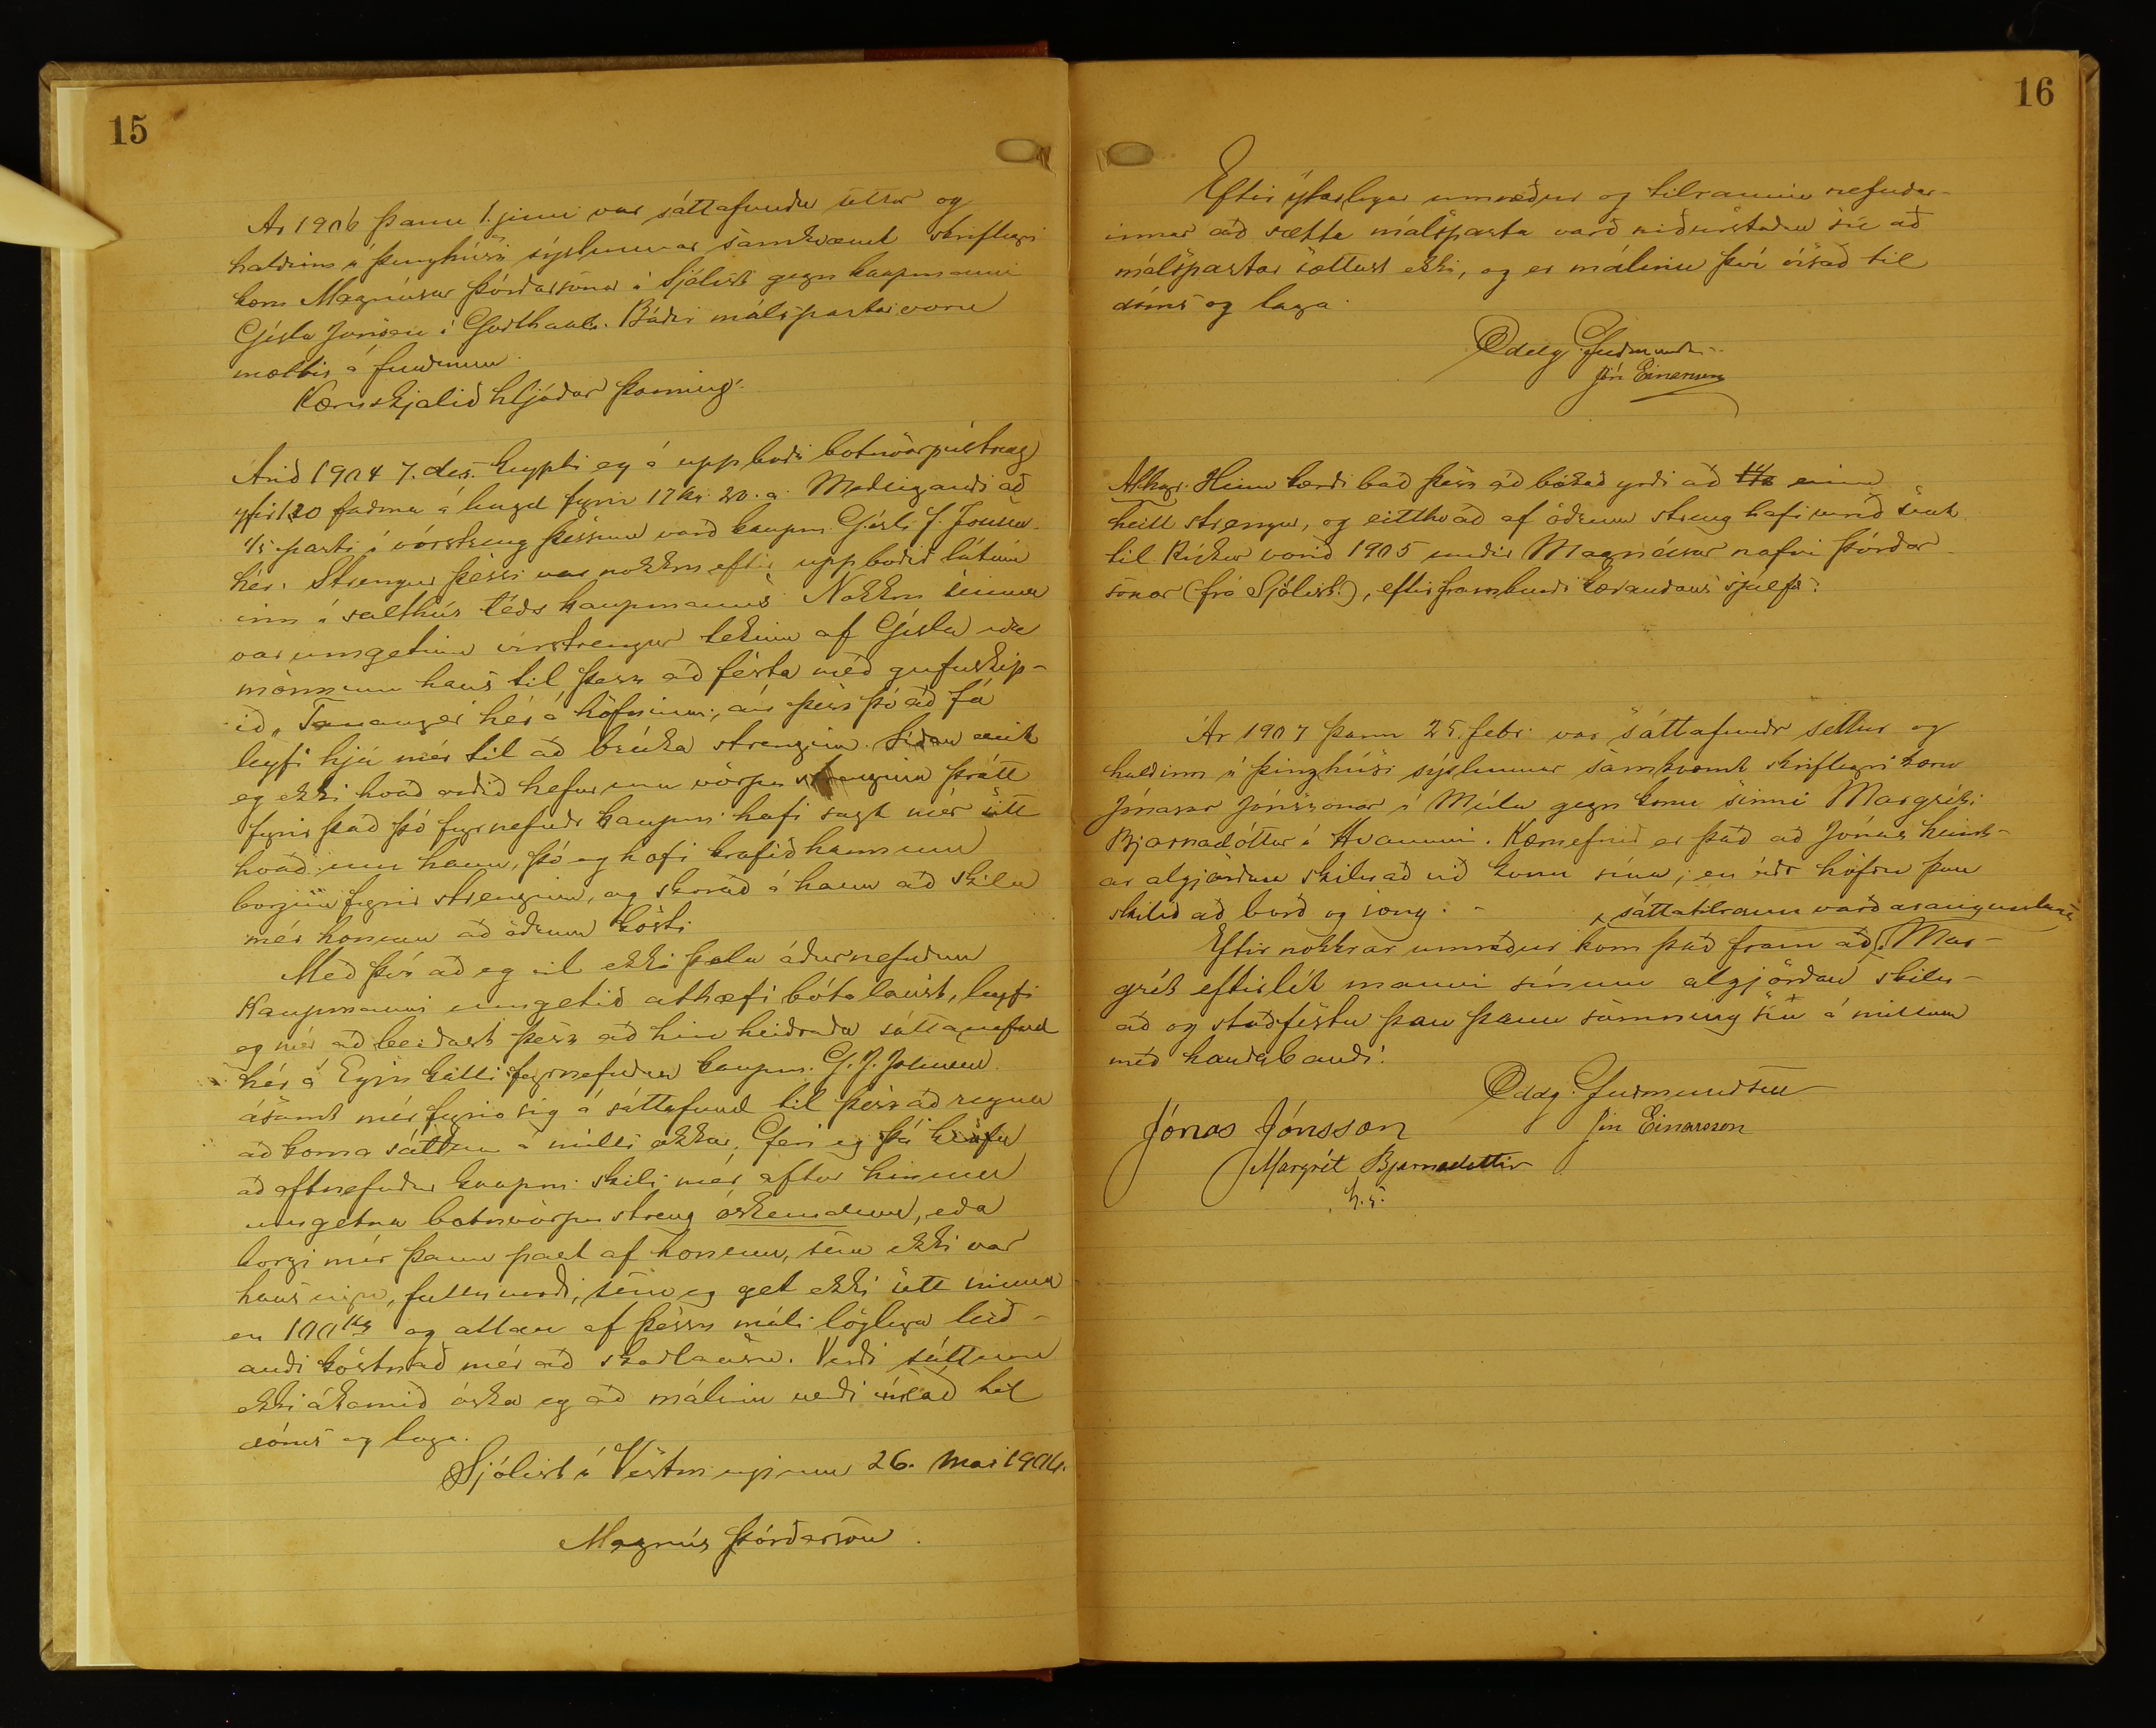 15
Ár 1906 þann 1. júni var sáttafundur settur og
haldinn á þinghúsi sýslunnar samkvæmt skriflegri
kæru Magnúsar Þórðarsonar á Sjólist gegn kaupmanni
Gísla Jónssen í Godthaab. Báðir málspartar voru
mættir á fundinum.
Kæruskjalið hljóðar þannig:
Árið 1904 7. des. keypti eg á uppboði botnvörpustreng
yfir 120 faðma á lengd fyrir 17 kr. 20. a. Meðeigandi að
1/5 parti í vörstreng þessum varð kaupm. Gísli J. Johnsen
hér. Strengur þessi var nokkru eftir uppboðið látinn
inn í salthús téðs kaupmanns. Nokkru seinna
var umgetinn vírstrengur tekinn af Gísla eða
mönnum hans til þess að festa með gufuskip-
ið „Tananger hér á höfninni, án þess þó að fá
leyfi hjá mér til að brúka strenginn. Síðan veit
eg ekki hvað orðið hefur um vörpustrenginn þrátt
fyrir það þó fyrnefndr kaupm. hafi sagt mér sitt
hvað um hann, þó eg hafi krafið hann um
borgun fyrir strenginn, og skorað á hann að skila
mér honum að öðrum kosti.
Með því að eg vil ekki þola áðurnefndum
kaupmanni umgetið athæfi bótalaust, leyfi
eg mér að beiðast þess að hin heiðraða sáttanefnd
hér á Eyju kalli fyrnefndan kaupm. G. J. Johnsen
ásamt mér fyrir sig á sáttafund til þess að reyna
að koma sáttum á milli okkar. Geri eg þá kröfu
að oftnefndur kaupm. skili mér aftur hinum
umgetna botnvörpustreng óskemdum, eða
borgi mér þann part af honum, sem ekki var
hans eign, fullu verði, sem eg get ekki sett minna
en 100 kr og allan af þessu máli löglega leið-
andi kostnað mér að skaðlausu. Verði sáttum
ekki ákomið óska eg að málinu verði vísað til
dóms og laga.
Sjólist í Vestm.eyjum 26. Mai 1906.
Magnús Þórðarson.
16
Eftir ýtarlegar umræður og tilraunir nefndar-
innar að sætta málsparta varð niðurstaðan sú að
málspartar sættust ekki, og er málinu því vísað til
dóms og laga.
Oddg. Guðmunds..
Jón Einarsson
Athugs. Hinn kærði bað þess að bókað yrði að einn
heill strengur, og eitthvað af öðrum streng hafi verið sent
til Rvíkur vorið 1905 undir Magnúsar nafni Þórðar-
sonar (frá Sjólist), eftir framburði kærandans sjálfs.
Ár 1907 þann 25. febr. var sáttafundr settur og
haldinn á þinghúsi sýslunnar samkvæmt skriflegri kæru
Jónasar Jónssonar í Múla gegn konu sinni Margréti
Bjarnadóttur í Hvammi. Kæruefnið er það að Jónas heimt-
ar algjörðan skilnað við konu sína; en áðr höfðu þau
skilið að borð og sæng. -
sáttatilraun varð árangurslaus
Eftir nokkrar umræður kom það fram að Mar-
grét eftirlét manni sínum algjörðan skiln-
að og staðfestu þau þann samning sín á millum
með handabandi.
Oddg. Guðmundsen
Jón Einarsson
Jónas Jónsson
Margrét Bjarnadottir
h.s.